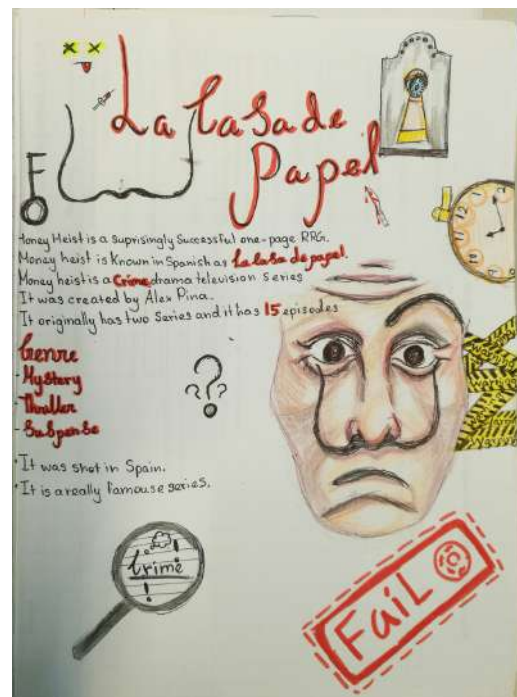 La Casa de
Papel
Money Heist is a suprisingly Successful one-page RRG.
Money heist is Known in Spanish as La Casa de papel.
Money heist is a Crime drama television series
It was created by Alex Pina.
It originally has two Series and it has 15 episodes
Genre
- Mystery
- Thriller
- Suspense
It was shot in Spain.
It is a really famouse series.
Crime
!
FaiL